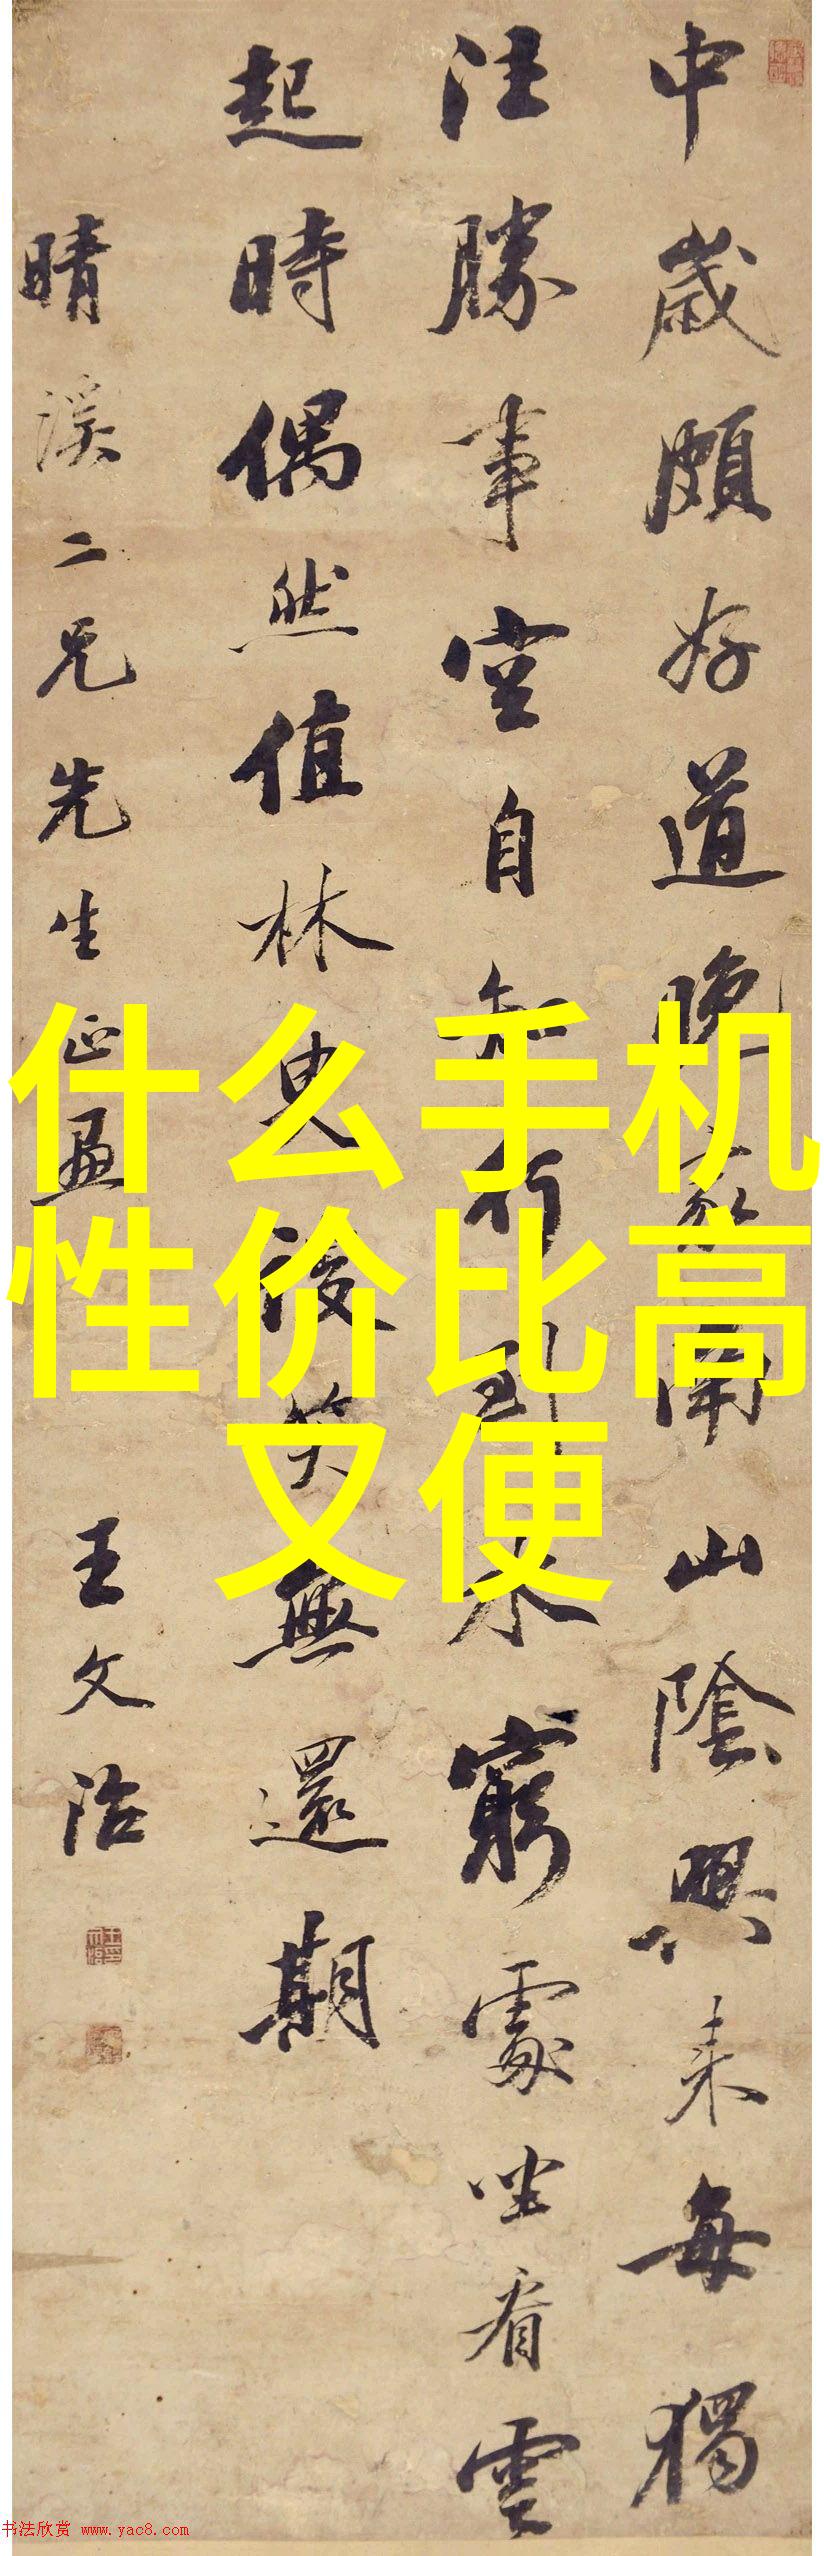 中歲頗好道晚家南山陰興来每獨
往勝事空自知行到水窮處坐看雲
起時偶然值林叟談笑無還期
晴溪二兄先生正畫
王文治
什么手机
性价比高
又便
书法欣赏 www.yac8.com